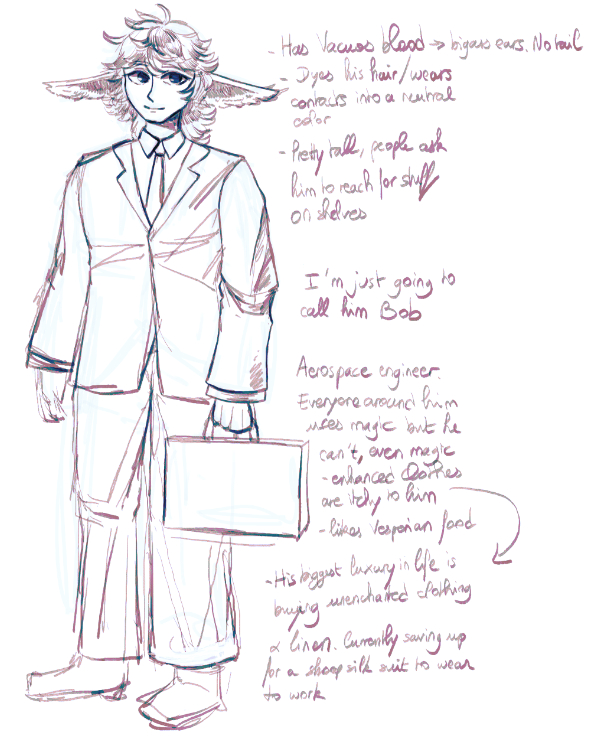 - Has Vacuos blood → bigass ears. No tail
- Dyes his hair/wears
contacts into a neutral
color
- Pretty tall, people ask
him to reach for stuff
on shelves
I'm just going to
call him Bob
Aerospace engineer.
Everyone around him
uses magic but he
can't, even magic
-enhanced clothes
are itchy to him
- likes Vesperian food
- His biggest luxury in life is
buying unenchanted clothing
& linen. Currently saving up
for a sheep silk suit to wear
to work